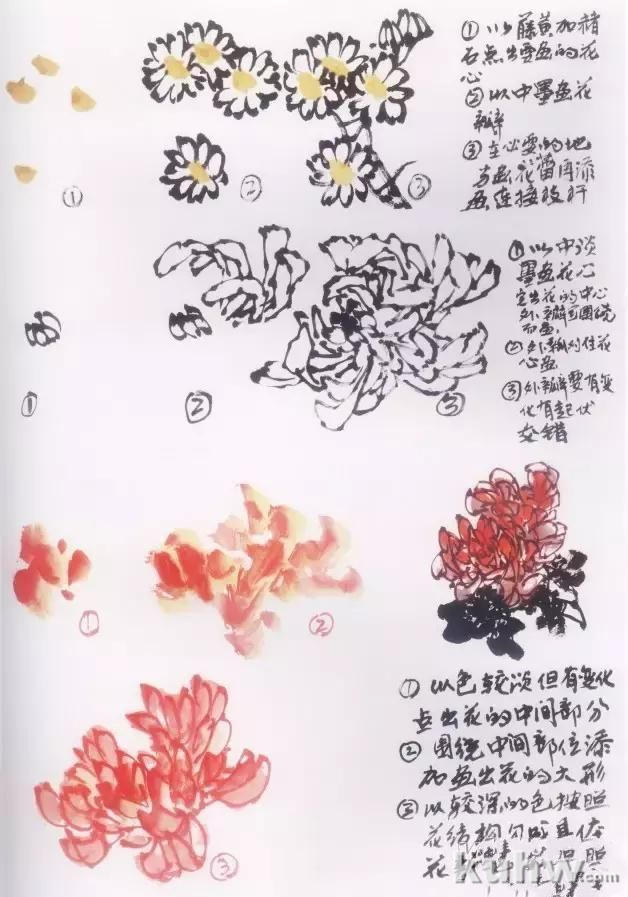 ① 以藤黄加赭
石点出要画的花
心
② 以中墨画花
瓣
③ 在必要的地
方画花蕾再添
画连接枝杆
① ② ③
① 以中淡
墨画花心
定出花的中心
外瓣可围绕
而画
② 外瓣围住花
心画
③ 外瓣要有变
化有起伏
交错
① ② ③
① ②
① 以色较淡但有变化
点出花的中间部分
② 围绕中间部位添
加画出花的大形
③ 以较深的色按照
花结构勾
花
③
kuhw.com